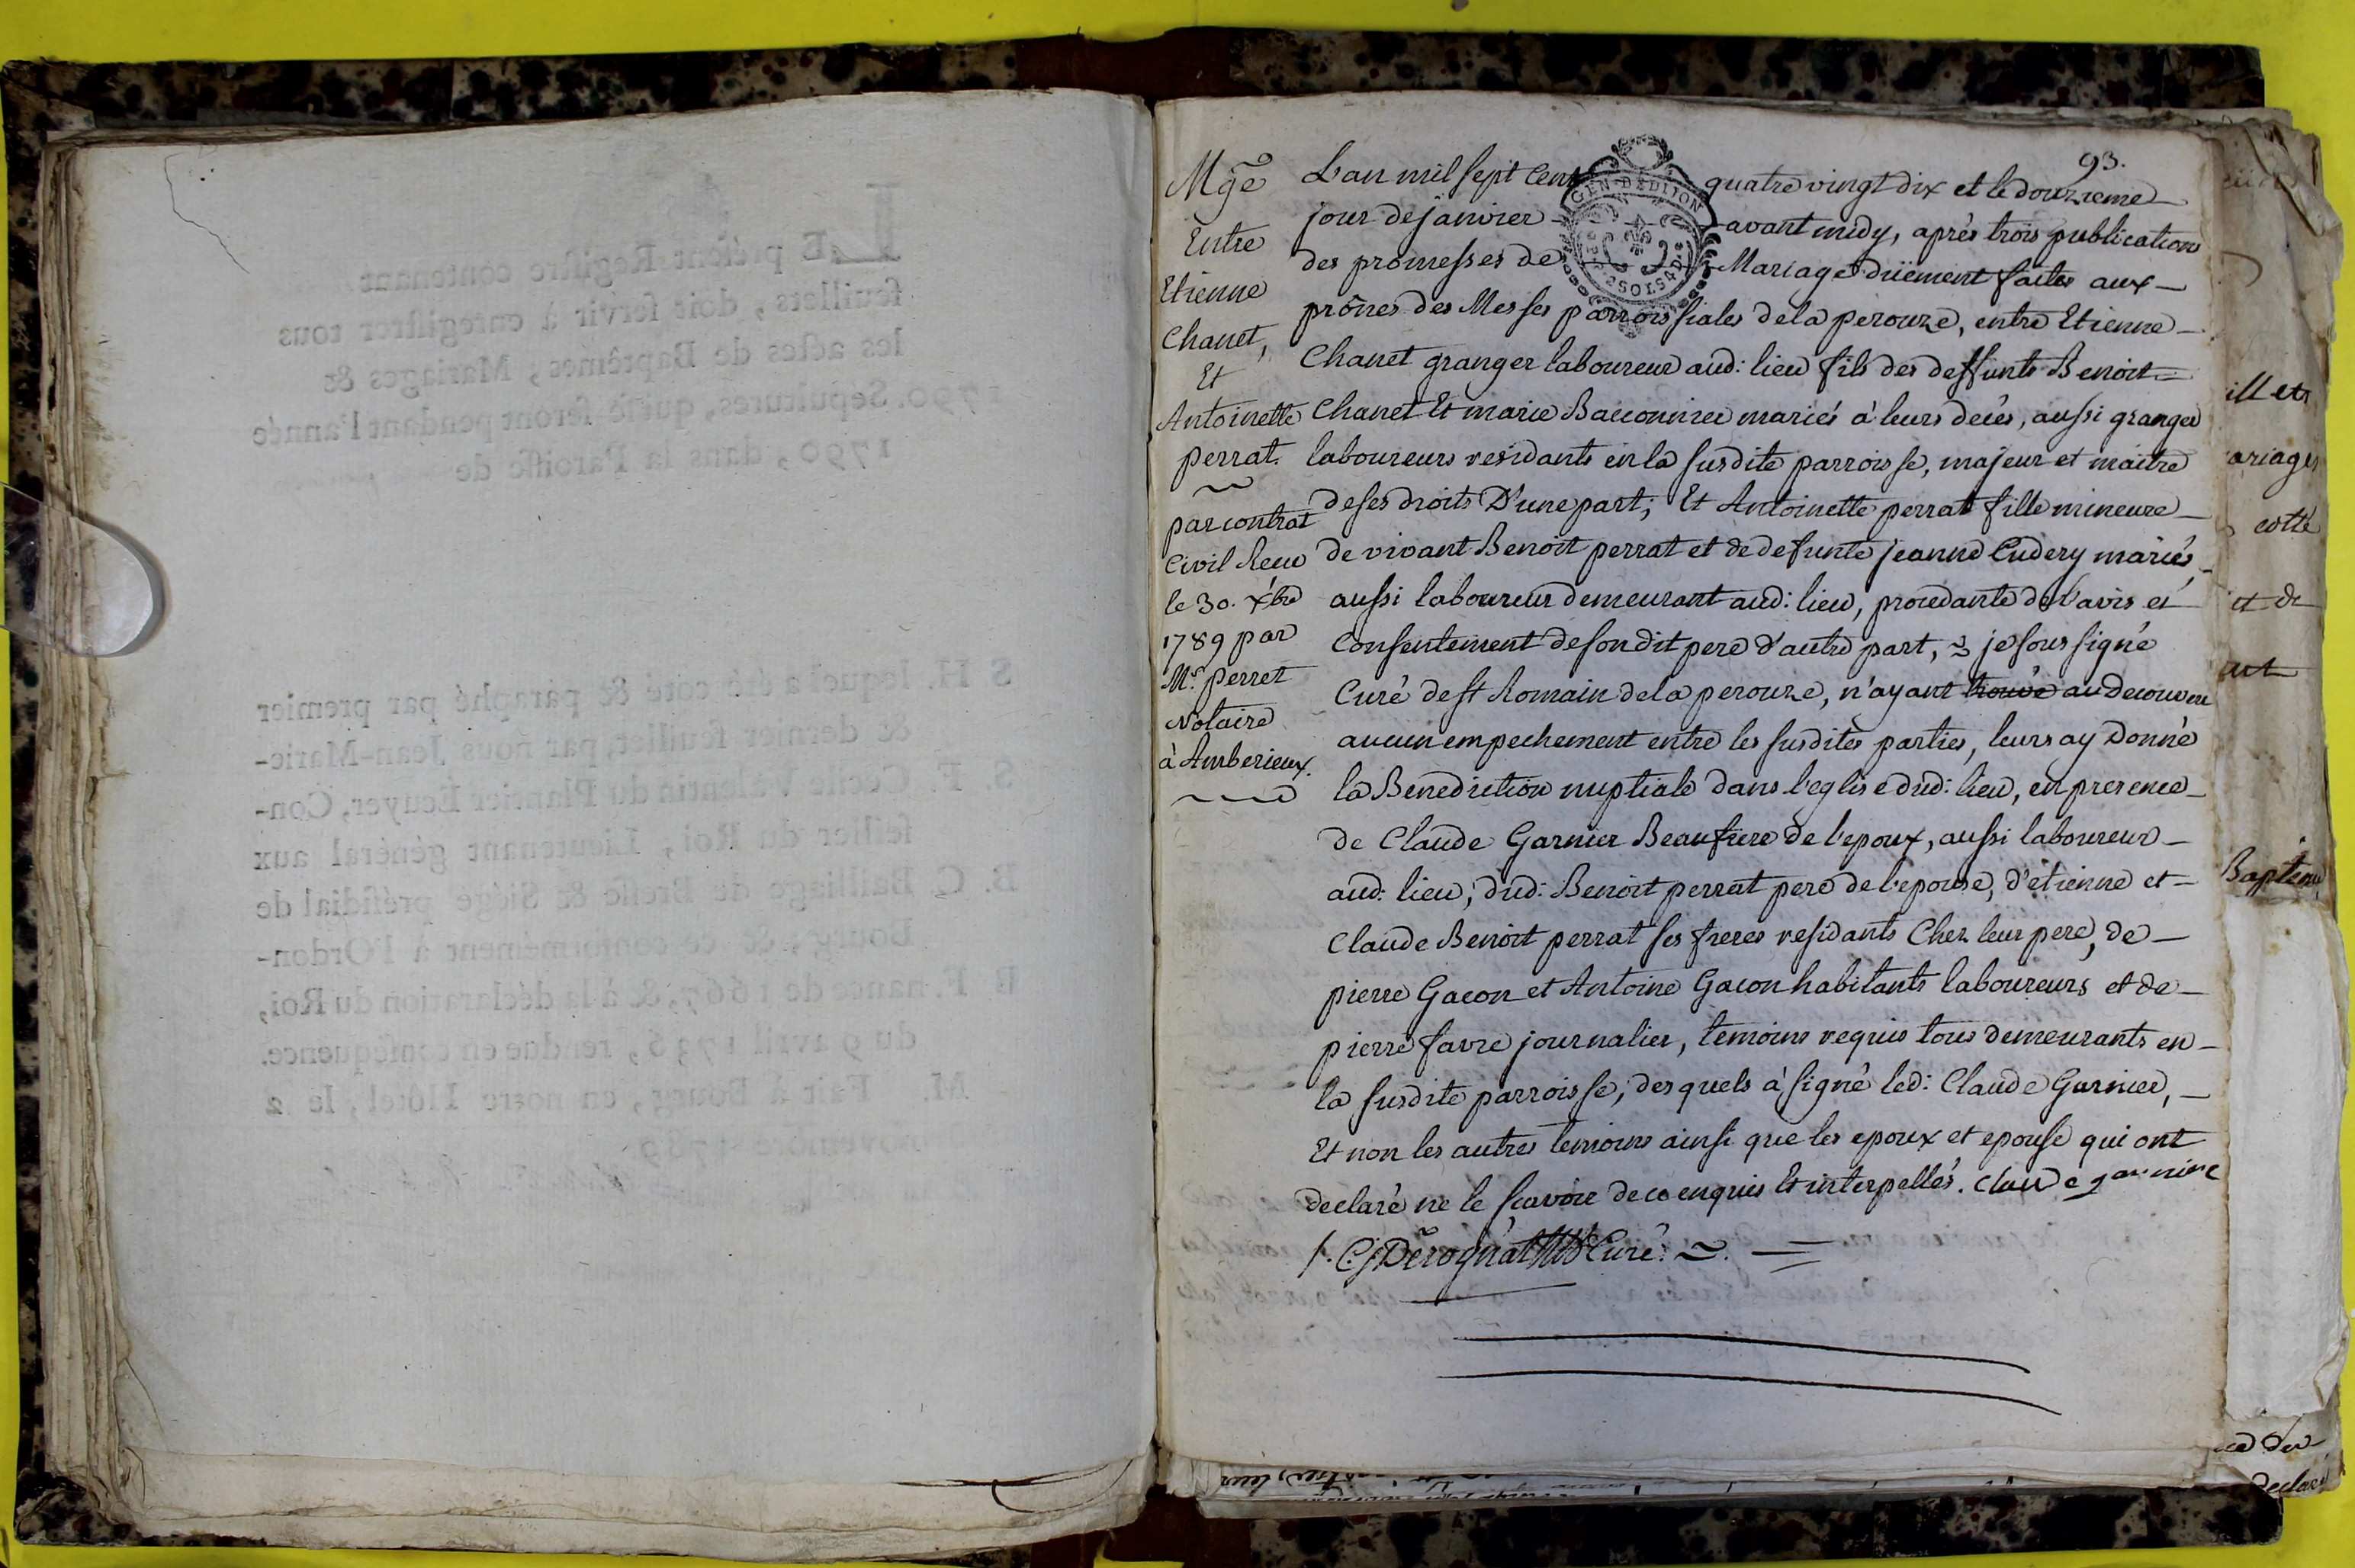 93.
Mg̃e
Entre
Etienne
Chanet,
Et
Antoinette
perrat.
par contrat
Civil Receu
le 30. xbre
1789 par
Mr. perret
Notaire
à Amberieux.
L'an mil sept Cent quatre vingt dix et le douzieme
jour de janvier avant midy, après trois publications
des promesses de Mariage düement faites aux
prônes des Messes parroissiales de la perouze, entre Etienne
Chanet granger laboureur aud: lieu fils des deffunts Benoit
Chanet Et marie mariés à leurs decès, aussi granger
laboureurs residants en la susdite parroisse, majeur et maitre
de ses droits D'une part; Et Antoinette perrat fille mineure
de vivant Benoit perrat et de defunte jeanne Cudery mariés,
aussi laboureur demeurant aud: lieu, procedante de l'avis et
Consentement de son dit pere d'autre part, je sous signé
Curé de st Romain de la perouze, n'ayant trouvé au decouvert
aucun empechement entre les susdites parties, leurs ay Donné
la Benediction nuptiale dans l'eglise dud: lieu, en presence
de Claude Garnier Beaufrere de l'epoux, aussi laboureur
aud: lieu; dud: Benoit perrat pere de l'epouse, d'etienne et
Claude Benoit perrat ses freres residants Chez leur pere, de
pierre Gacon et Antoine Gacon habitants laboureurs et de
pierre favre journalier, temoins requis tous demeurants en
la susdite parroisse; desquels à signé led: Claude Garnier,
Et non les autres temoins ainsi que les epoux et epouse qui ont
declaré ne le scavoir de ce enquis Et interpellés. Claude garnier
Curé.
GEN. DE DIJON
LE présent Registre contenant
feuillets, doit servir à enregistrer tous
les actes de Baptêmes, Mariages &
1790. Sépultures, qui se feront pendant l'année
1790, dans la Paroisse de
S H. lequel a été coté & paraphé par premier
& dernier feuillet, par nous Jean-Marie-
S. F. Cécile Valentin du Plantier Ecuyer, Con-
seiller du Roi, Lieutenant général aux
B. C. Bailliage de Bresse & Siége présidial de
Bourg, & ce conformément à l'Ordon-
B F. nance de 1667, & à la déclaration du Roi,
du 9 avril 1736, rendue en conséquence.
M. Fait à Bourg, en notre Hôtel, le 2
novembre 1789
ariages
cotté
et de
Baptême
declaré